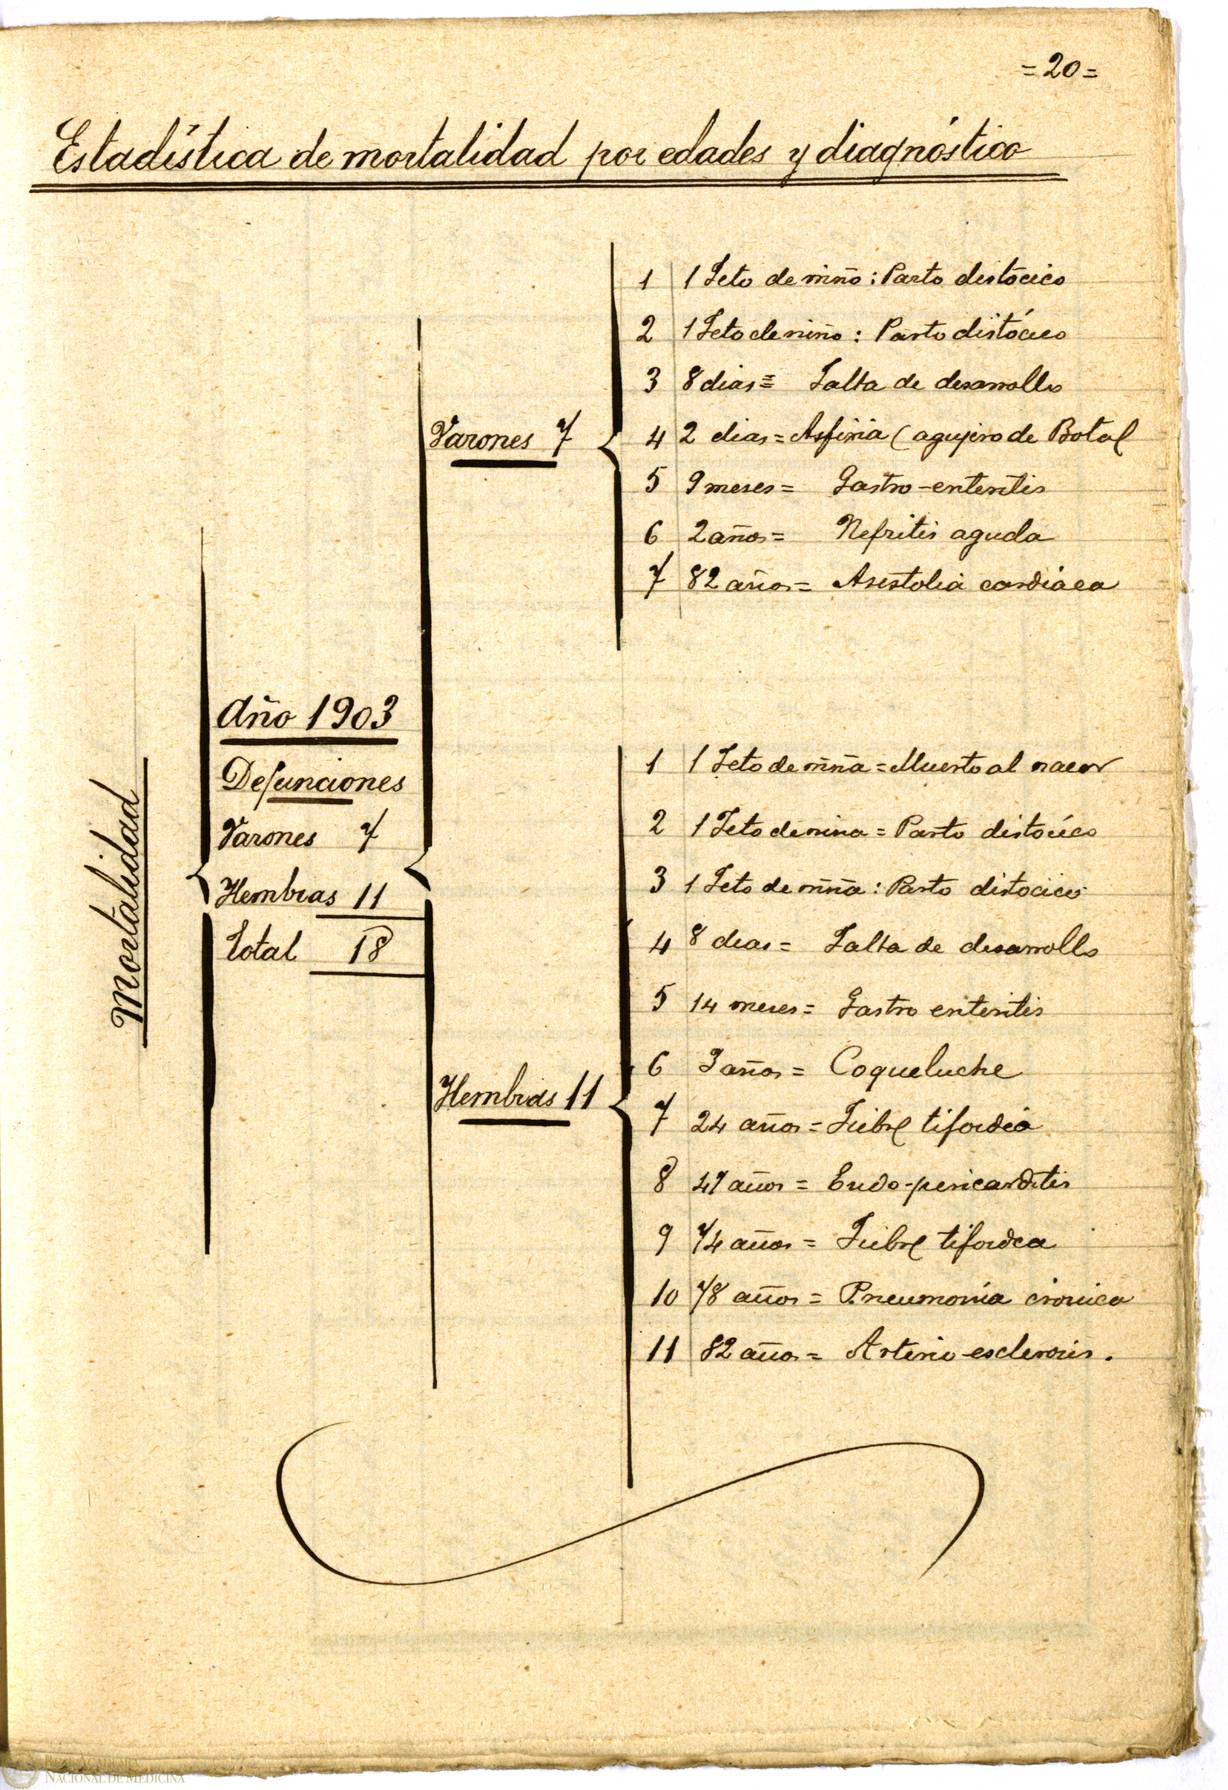 =20=
Estadística de mortalidad por edades y diagnóstico
Mortalidad
Año 1903
Defunciones
Varones 7
Hembras 11
Total 18
Varones 7
1 1 Feto de niño: Parto distócico
2 1 Feto de niño: Parto distócico
3 8 dias = Falta de desarrollo
4 2 dias = Asfixia (agujero de Botal
5 9 meses = Gastro-enteritis
6 2 años = Nefritis aguda
7 82 años = Asistolia cardíaca
Hembras 11
1 1 Feto de niña = Muerto al nacer
2 1 Feto de niña = Parto distócico
3 1 Feto de niña: Parto distocico
4 8 dias = Falta de desarrollo
5 14 meses = Gastro enteritis
6 3 años = Coqueluche
7 24 años = Fiebre tifoidea
8 47 años = Endo-pericarditis
9 74 años = Fiebre tifoidea
10 78 años = Pneumonía crónica
11 82 años = Arterio-esclerosis.
REAL ACADEMIA
NACIONAL DE MEDICINA